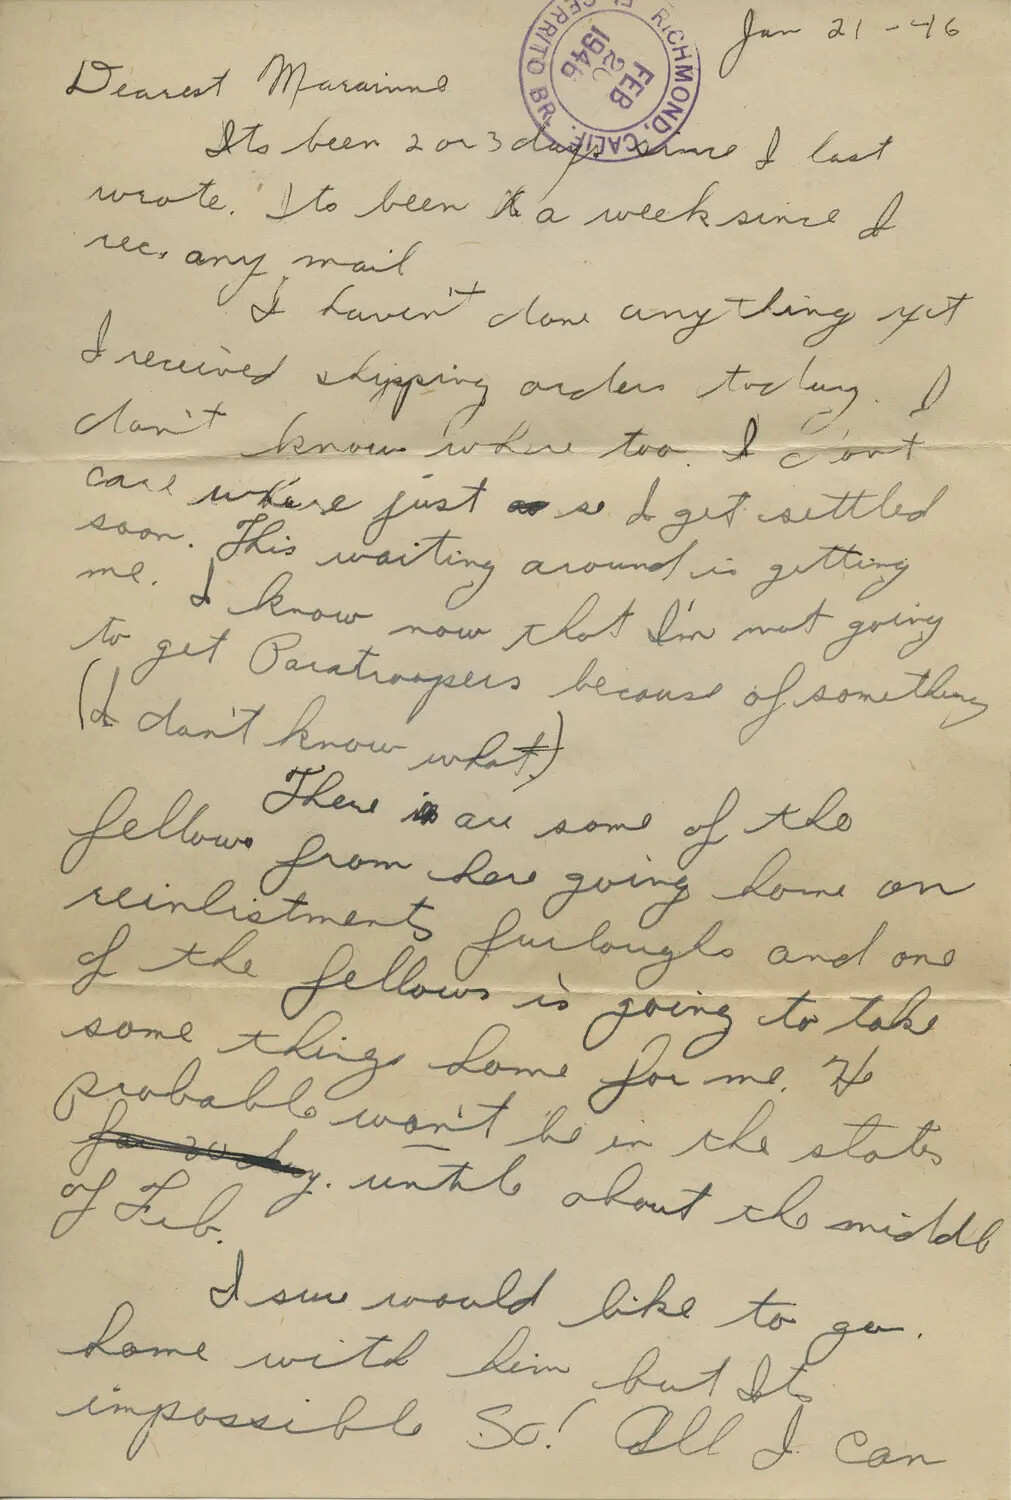 Jan 21 - 46
RICHMOND, CALIF.
EL CERRITO BR.
FEB
2
1946
Dearest Marainne
Its been 2 or 3 days since I last
wrote. Its been a week since I
rec. any mail
I haven't done anything yet
I received shipping orders today. I
don't know where too. I don't
care where just so I get settled
soon. This waiting around is getting
me. I know now that I'm not going
to get Paratroopers because of something
(I don't know what.)
There are some of the
fellows from here going home on
reinlistments furloughs and one
of the fellows is going to take
some things home for me. He
probable won't be in the states
for 20 day. untile about the middle
of Feb.
I sure would like to go.
home with him but Its
impossible So! All I can